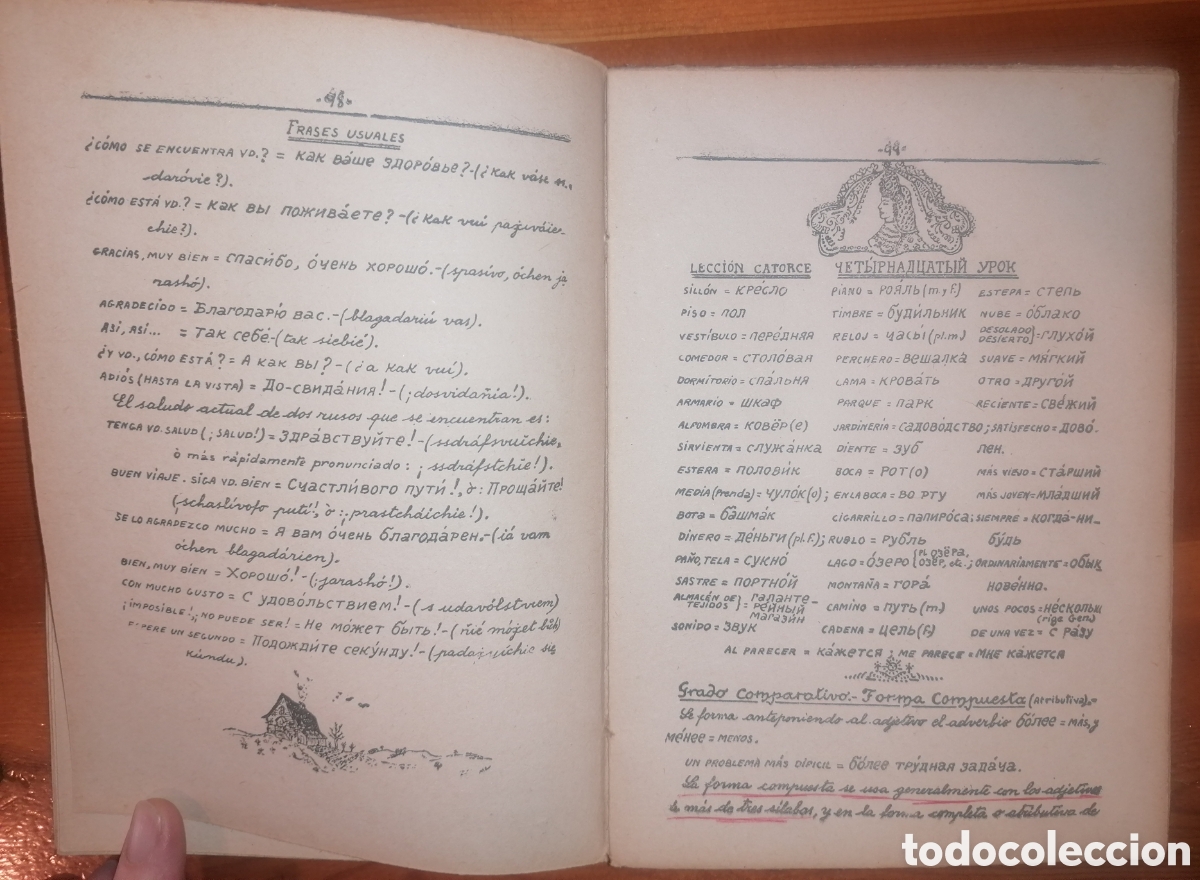 -48-
FRASES USUALES
¿CÓMO SE ENCUENTRA VD.? = Как ва́ше здоро́вье?-(¿Kak váse s..
daróvie?).
¿CÓMO ESTÁ VD.? = Как вы пожива́ете? -(¿Kak vuí pagiváie-
chie?).
GRACIAS, MUY BIEN = Спаси́бо, о́чень хорошо́.-(spasívo, óchen ja
rashó).
AGRADECIDO = Благодарю́ вас.-(blagadariú vas).
ASÍ, ASÍ... = Так себе́-(tak siebié).
¿Y VD., CÓMO ESTÁ? = А как вы? -(¿a kak vuí).
ADIÓS (HASTA LA VISTA) = До-свида́ния! -(¡dosvidáñia!).
El saludo actual de dos rusos que se encuentran es:
TENGA VD. SALUD (¡SALUD!) = Здра́вствуйте! -(ssdráfsvuichie,
ò más rápidamente pronunciado: ¡ssdráfstchie!).
BUEN VIAJE. SIGA VD. BIEN = Счастли́вого пути́!, ò: Проща́йте!
(¡schaslívofo putí!, ò: ¡prastcháichie!).
SE LO AGRADEZCO MUCHO = Я вам о́чень благода́рен.-(iá vam
óchen blagadárien).
BIEN, MUY BIEN = Хорошо́! -(¡jarashó!).
CON MUCHO GUSTO = С удово́льствием! -(s udavólstviem)
¡IMPOSIBLE!, ¡NO PUEDE SER! = Не мо́жет быть! -(ñié mójet buít)
ESPERE UN SEGUNDO = Подожди́те секу́нду! -(padajduíchie sie
kúndu).
-49-
LECCIÓN CATORCE ЧЕТЫ́РНАДЦАТЫЙ УРОК
SILLÓN = КРЕ́СЛО PIANO = РОЯ́ЛЬ (m y f.) ESTEPA = СТЕПЬ
PISO = ПОЛ TIMBRE = БУДИ́ЛЬНИК NUBE = О́БЛАКО
VESTÍBULO = ПЕРЕ́ДНЯЯ RELOJ = ЧАСЫ́ (pl.m) DESOLADO DESICATO] = ГЛУХО́Й
COMEDOR = СТОЛО́ВАЯ PERCHERO = ВЕШАЛКА SUAVE = МЯ́ГКИЙ
DORMITORIO = СПА́ЛЬНА CAMA = КРОВА́ТЬ OTRO = ДРУГО́Й
ARMARIO = ШКАФ PARQUE = ПАРК RECIENTE = СВЕ́ЖИЙ
ALFOMBRA = КОВЁР(е) JARDINERÍA = САДОВО́ДСТВО; SATISFECHO = ДОВО́-
SIRVIENTA = СЛУЖА́НКА DIENTE = ЗУБ ЛЕН.
ESTERA = ПОЛОВИ́К BOCA = РОТ(о) MÁS VIEJO = СТА́РШИЙ
MEDIA (prenda) = ЧУЛО́К(о); EN LA BOCA = ВО РТУ MÁS JOVEN = МЛА́ДШИЙ
BOTA = БАШМА́К CIGARRILLO = ПАПИРО́СА; SIEMPRE = КОГДА́-НИ-
DINERO = ДЕ́НЬГИ (pl.F.); RUBLO = РУБЛЬ БУДЬ
PAÑO, TELA = СУКНО́ LAGO = О́ЗЕРО {PL ОЗЁРА, ОЗЁР, etc.; ORDINARIAMENTE = ОБЫК
SASTRE = ПОРТНО́Й MONTAÑA = ГОРА́ НОВЕ́ННО.
ALMACÉN DE TEJIDOS} = ГАЛАНТЕ- РЕ́ЙНЫЙ МАГАЗИ́Н CAMINO = ПУТЬ (m.) UNOS POCOS = НЕ́СКОЛЬК (rige Gen.)
SONIDO = ЗВУК CADENA = ЦЕПЬ (F.) DE UNA VEZ = С РА́ЗУ
AL PARECER = КА́ЖЕТСЯ; ME PARECE = МНЕ КА́ЖЕТСЯ
Grado Comparativo.- Forma Compuesta (atributiva).=
Se forma anteponiendo al adjetivo el adverbio бо́лее = MÁS, y
ме́нее = MENOS.
UN PROBLEMA MÁS DIFÍCIL = бо́лее тру́дная зада́ча.
La forma compuesta se usa generalmente con los adjetivos
de más de tres sílabas, y en la forma completa o atributiva de
todocoleccion